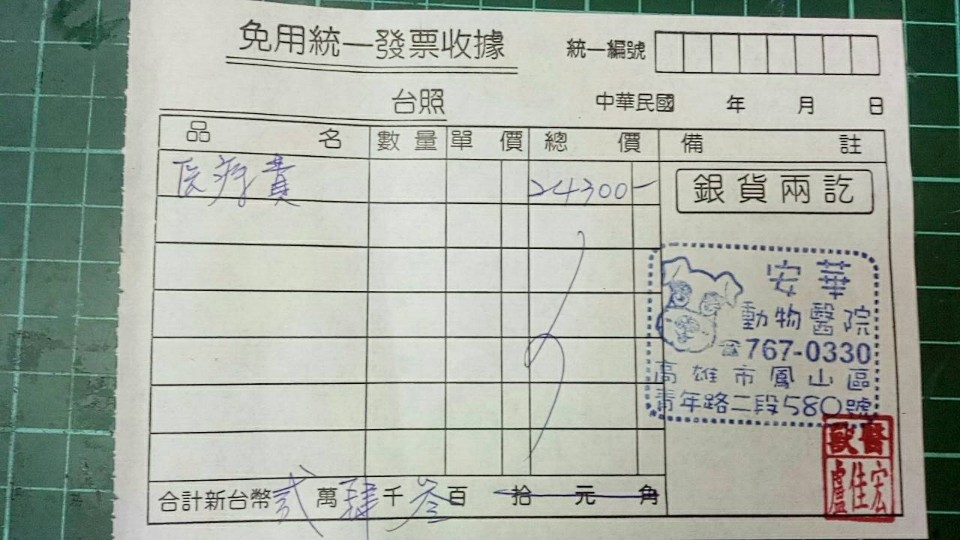 免用統一發票收據
統一編號
台照
中華民國 年 月 日
品名 數量 單價 總價 備註
医療費 24300-
銀貨兩訖
安華
動物醫院
☎767-0330
高雄市鳳山區
青年路二段580號
獸醫
盧佳宏
合計新台幣貳萬肆千叁百拾元角